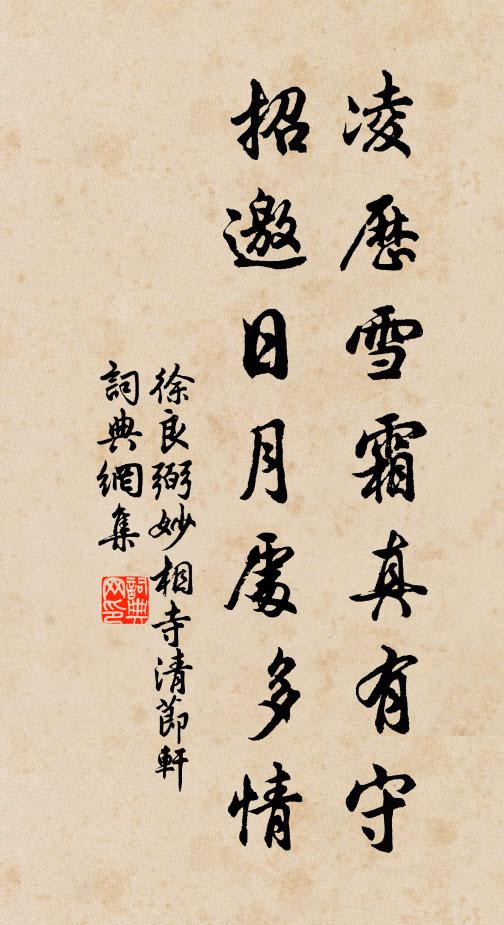 凌歷雪霜真有守
招邀日月處多情
徐良弼妙相寺清節軒
詞典網集
詞典
网印